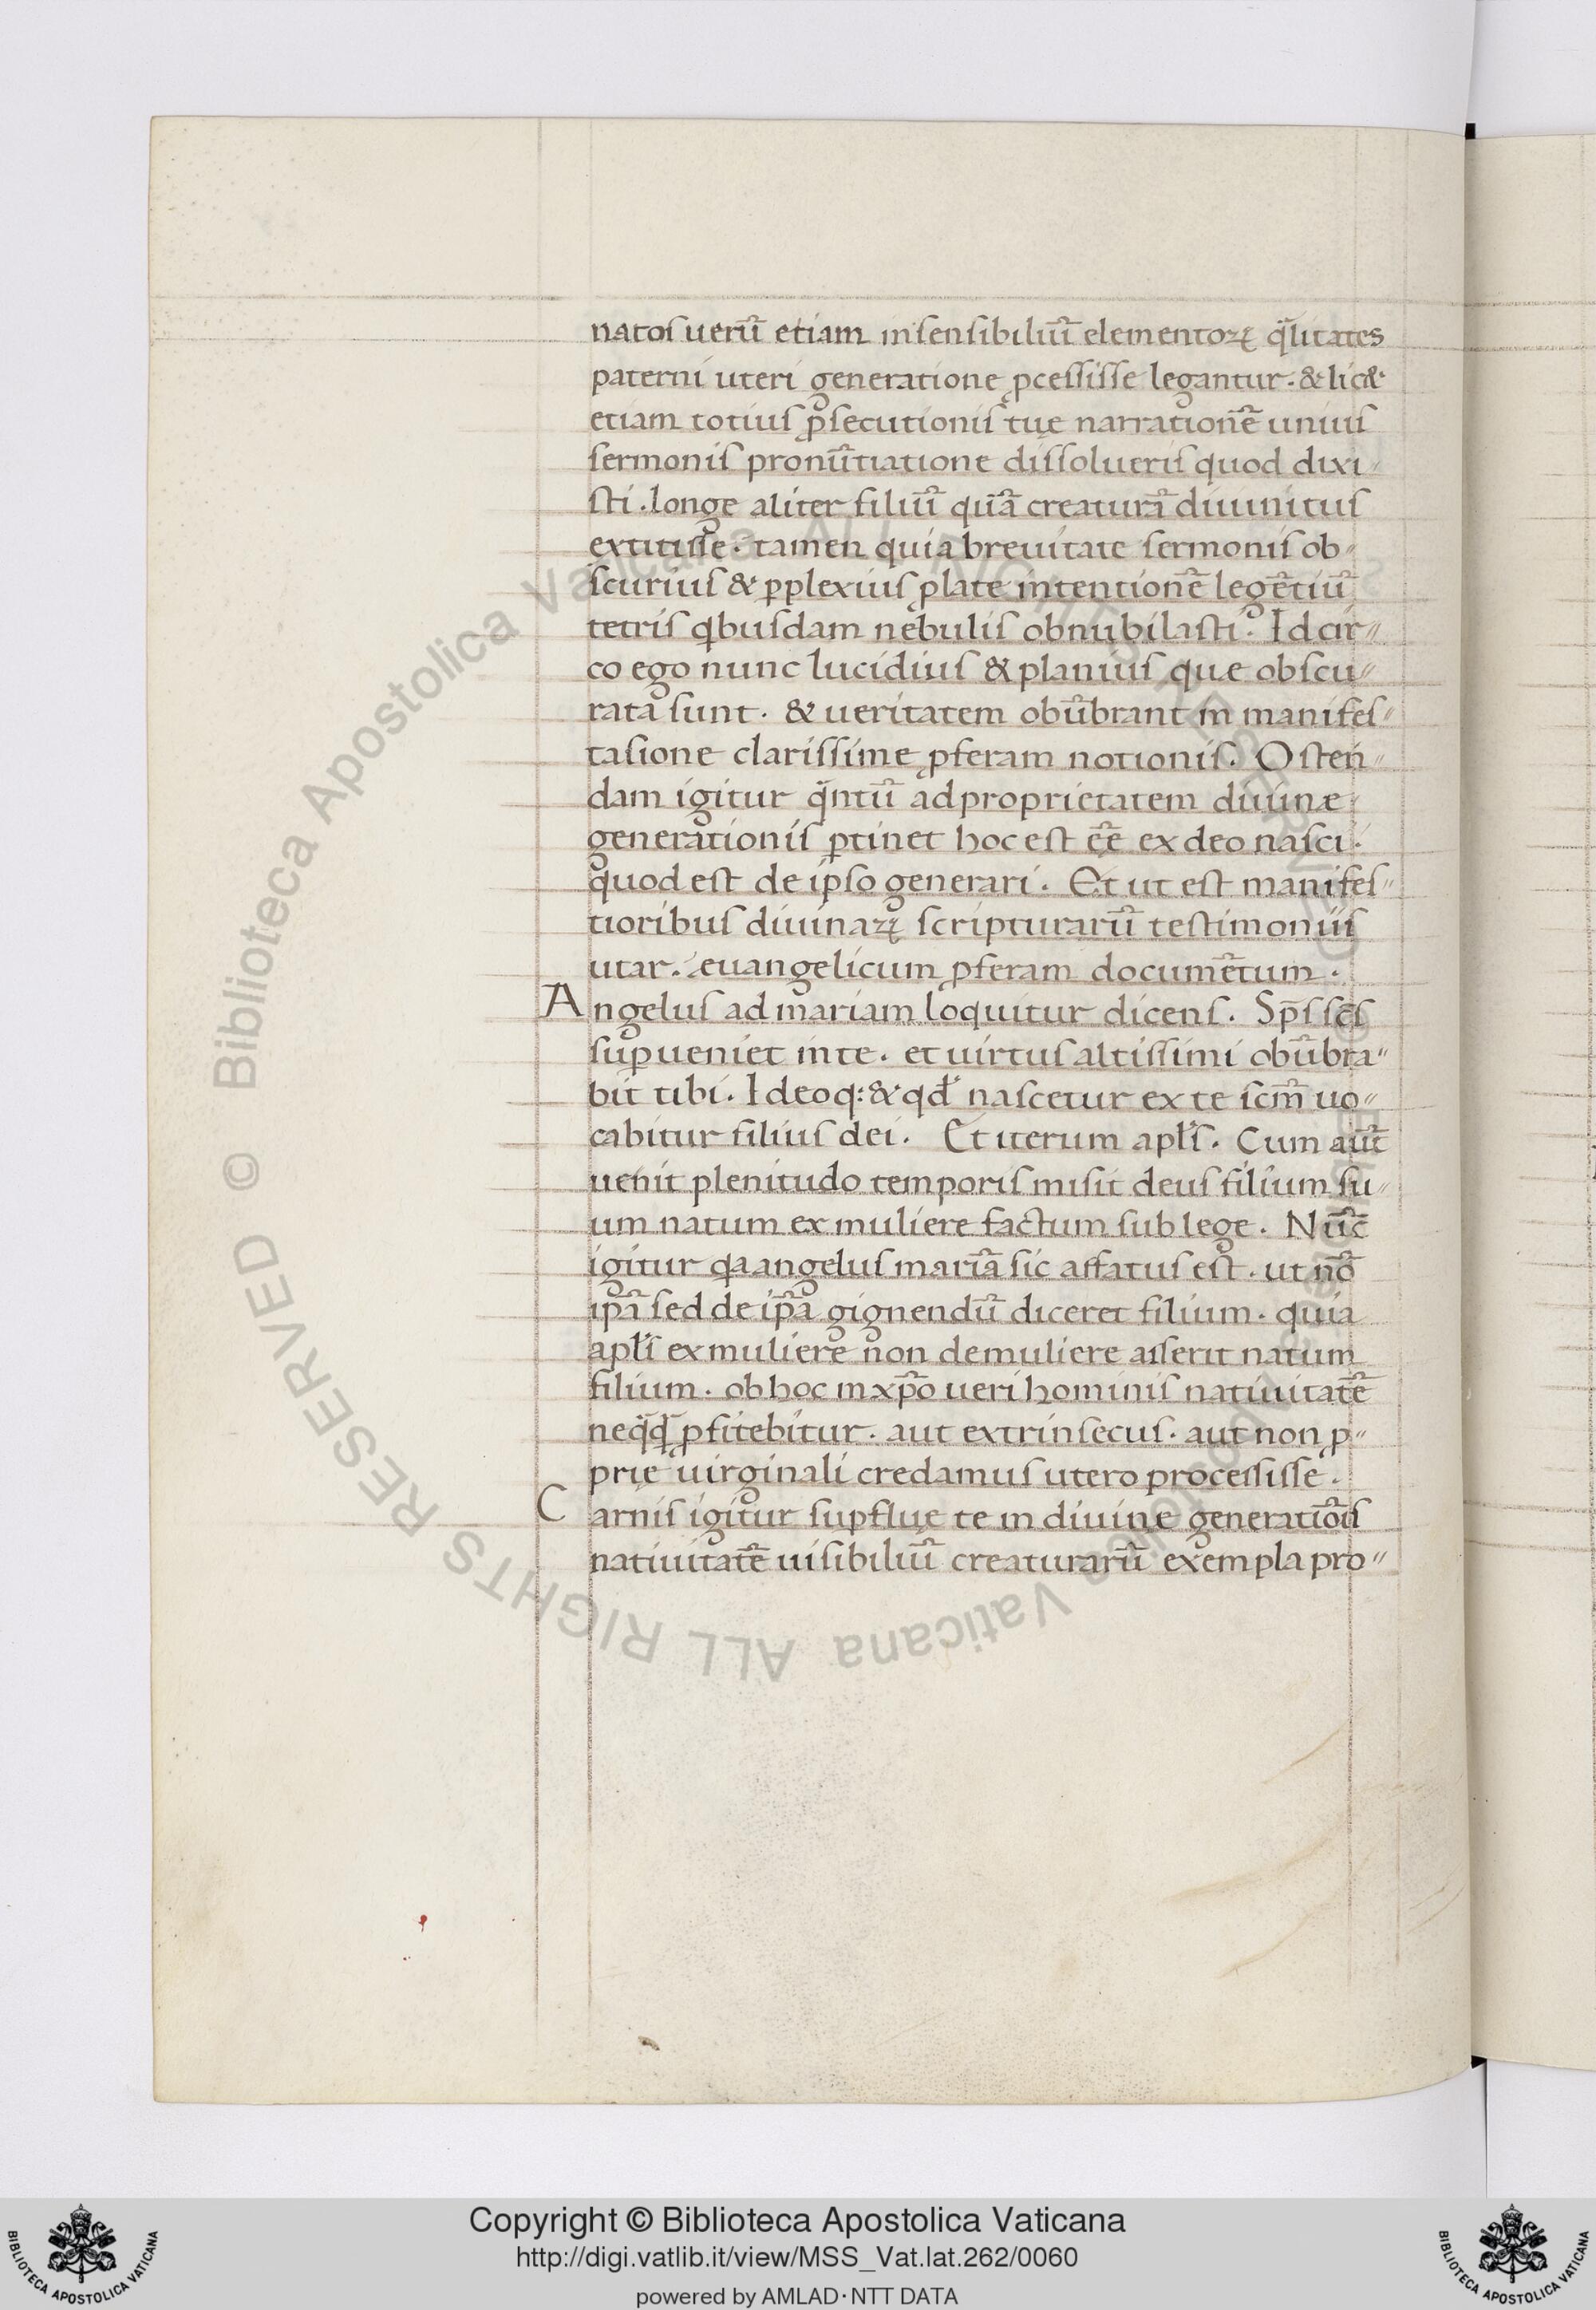 natos uerū etiam insensibiliū elementoꝝ qͣlitates
paterni uteri generatione ꝓcessisse legantur. & lic&
etiam totius ꝓsecutionis tuę narrationē unius
sermonis pronūtiatione dissolueris quod dixi〃
sti. longe aliter filiū quā creaturā diuinitus
extitisse. tamen quia breuitate sermonis ob〃
scurius & ꝑplexius ꝓlate intentionē legētiū
tetris qͥbusdam nebulis obnubilasti. Idcir〃
co ego nunc lucidius & planius que obscu〃
rata sunt. & ueritatem obūbrant in manifes〃
tasione clarissimę ꝓferam notionis. Osten〃
dam igitur qͣntū ad proprietatem diuinæ
generationis ꝑtinet hoc est eē ex deo nasci.
quod est de ipso generari. Et ut est manifes〃
tioribus diuinaꝝ scripturarū testimoniis
utar. euangelicum ꝓferam documētum.
Angelus ad mariam loquitur dicens. Sp̄s scs̄
suꝑueniet in te. et uirtus altissimi obūbra〃
bit tibi. Ideoq: & qd̓ nascetur ex te scm̄ uo〃
cabitur filius dei. Et iterum apl̓s. Cum aut̄
uenit plenitudo temporis misit deus filium su〃
um natum ex muliere factum sub lege. Nūc
igitur qͥa angelus mariā sic affatus est. ut nō
ip̄a sed de ip̄a gignendū diceret filium. quia
apl̓s ex muliere non de muliere asserit natum
filium. ob hoc in xp̄o ueri hominis natiuitatē
neqͣqͣ ꝓfitebitur. aut extrinsecus. aut non ꝓ〃
prie uirginali credamus utero processisse.
Carnis igitur suꝑfluę te in diuinę generatiōis
natiuitatē uisibiliū creaturarū exempla pro〃
© Biblioteca Apostolica Vaticana ALL RIGHTS RESERVED
Copyright © Biblioteca Apostolica Vaticana
http://digi.vatlib.it/view/MSS_Vat.lat.262/0060
powered by AMLAD·NTT DATA
BIBLIOTECA APOSTOLICA VATICANA
BIBLIOTECA APOSTOLICA VATICANA